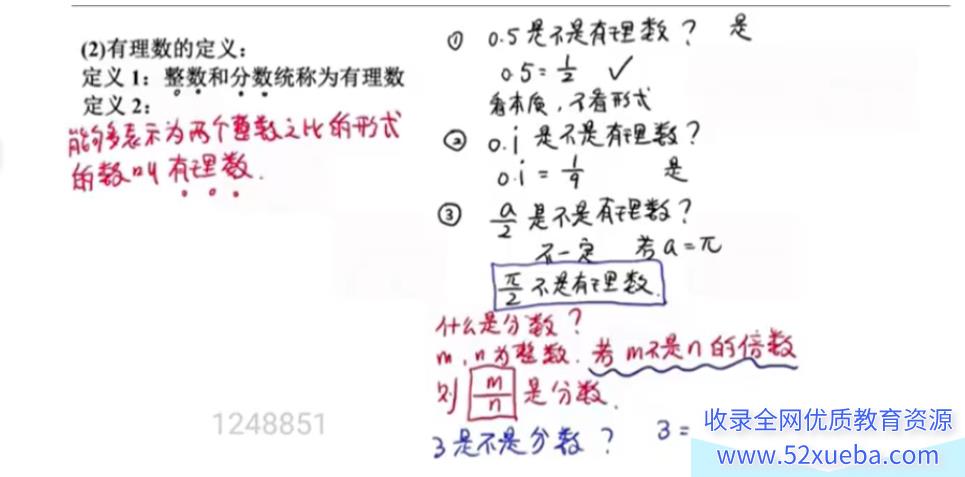 (2)有理数的定义：
定义 1：整数和分数统称为有理数
定义 2：
能够表示为两个整数之比的形式
的数叫 有理数.
① 0.5是不是有理数？ 是
0.5 = 1/2 ✓
看本质，不看形式
② 0.i 是不是有理数？
0.i = 1/9 是
③ a/2 是不是有理数？
不一定 若 a = π
π/2 不是有理数.
什么是分数？
m，n 为整数. 若 m不是n的倍数
则 m/n 是分数.
3是不是分数？ 3 =
1248851
收录全网优质教育资源
www.52xueba.com